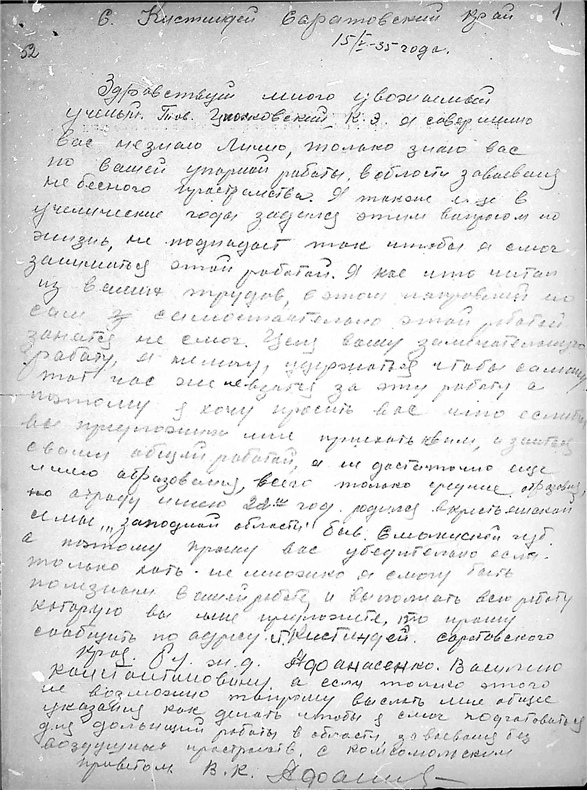 с. Кистендей Саратовский край 1
52 15/I-35 года.
Здравствуй много уважаемый
ученый. Тов. Циолковский К.Э. я совершено
вас незнаю лично, только знаю вас
по вашей упорной работы, в области завоевания
небесного пространства. Я также еще в
ученические годы задался этим вопросом но
жизнь, не подпадает так чтобы я смог
заняться этой работой. Я кое что читал
из ваших трудов, в этом направлении но
сам самостоятельно этой работой
заняться не смог. Целя вашу замечательную
работу, я не могу, удержаться чтобы самому
тот час же не взяться за эту работу а
поэтому я хочу просить вас что если бы
вы предложили мне приехать к вам, и заняться
своими общей работой, а не достаточно еще
имею образования, всего только среднее образов.
но отроду имею 22ой год. родился в крестьянской
семьи "западной области" быв. Смоленской губ.
а поэтому прошу вас убедительно если.
только хоть немножко я смогу быть
полезным в вашей работе, и выполнять всю работу
которую вы мне предложите, то прошу
сообщить по адресу: с. Кистендей. саратовского
края. ж.д. Афанасенко. Василию
Константиновичу а если только этого
не возможно то прошу выслать мне общие
указания как делать чтобы я смог подготовиться
для дольшей работы в области завоевания без
воздушных пространств. с комсомольским
приветом В.К. Афанас